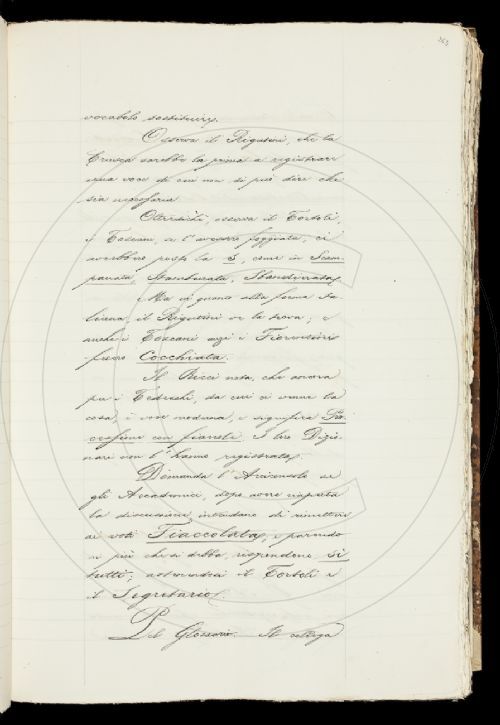 vocabolo sostituirsi.
Osserva il Rigutini, che la
Crusca sarebbe la prima a registrare
una voce di cui non si può dire che
sia necessaria.
Oltredichè, osserva il Tortoli,
i Toscani, se l'avessero foggiata, ci
avrebbero posto la S, come in Scam-
panata, Stamburata, Sbandierata.
Ma in quanto alla forma Ita-
liana, il Rigutini ve la trova; e
anche i Toscani anzi i Fiorentini
fecero Cocchiata.
Il Ricci nota, che ancora
per i Tedeschi, da cui ci venne la
cosa, è voce moderna, e significa Pro-
cessione con fiaccole. I loro Dizio-
nari non l'hanno registrata.
Domanda l'Arciconsolo se
gli Accademici, dopo avere riaperta
la discussione intendano di rimettere
ai voti Fiaccolata, e parendo
ai più che si debba, rispondono Si
tutti; astenendosi il Tortoli e
il Segretario.
Del Glossario. Il collega